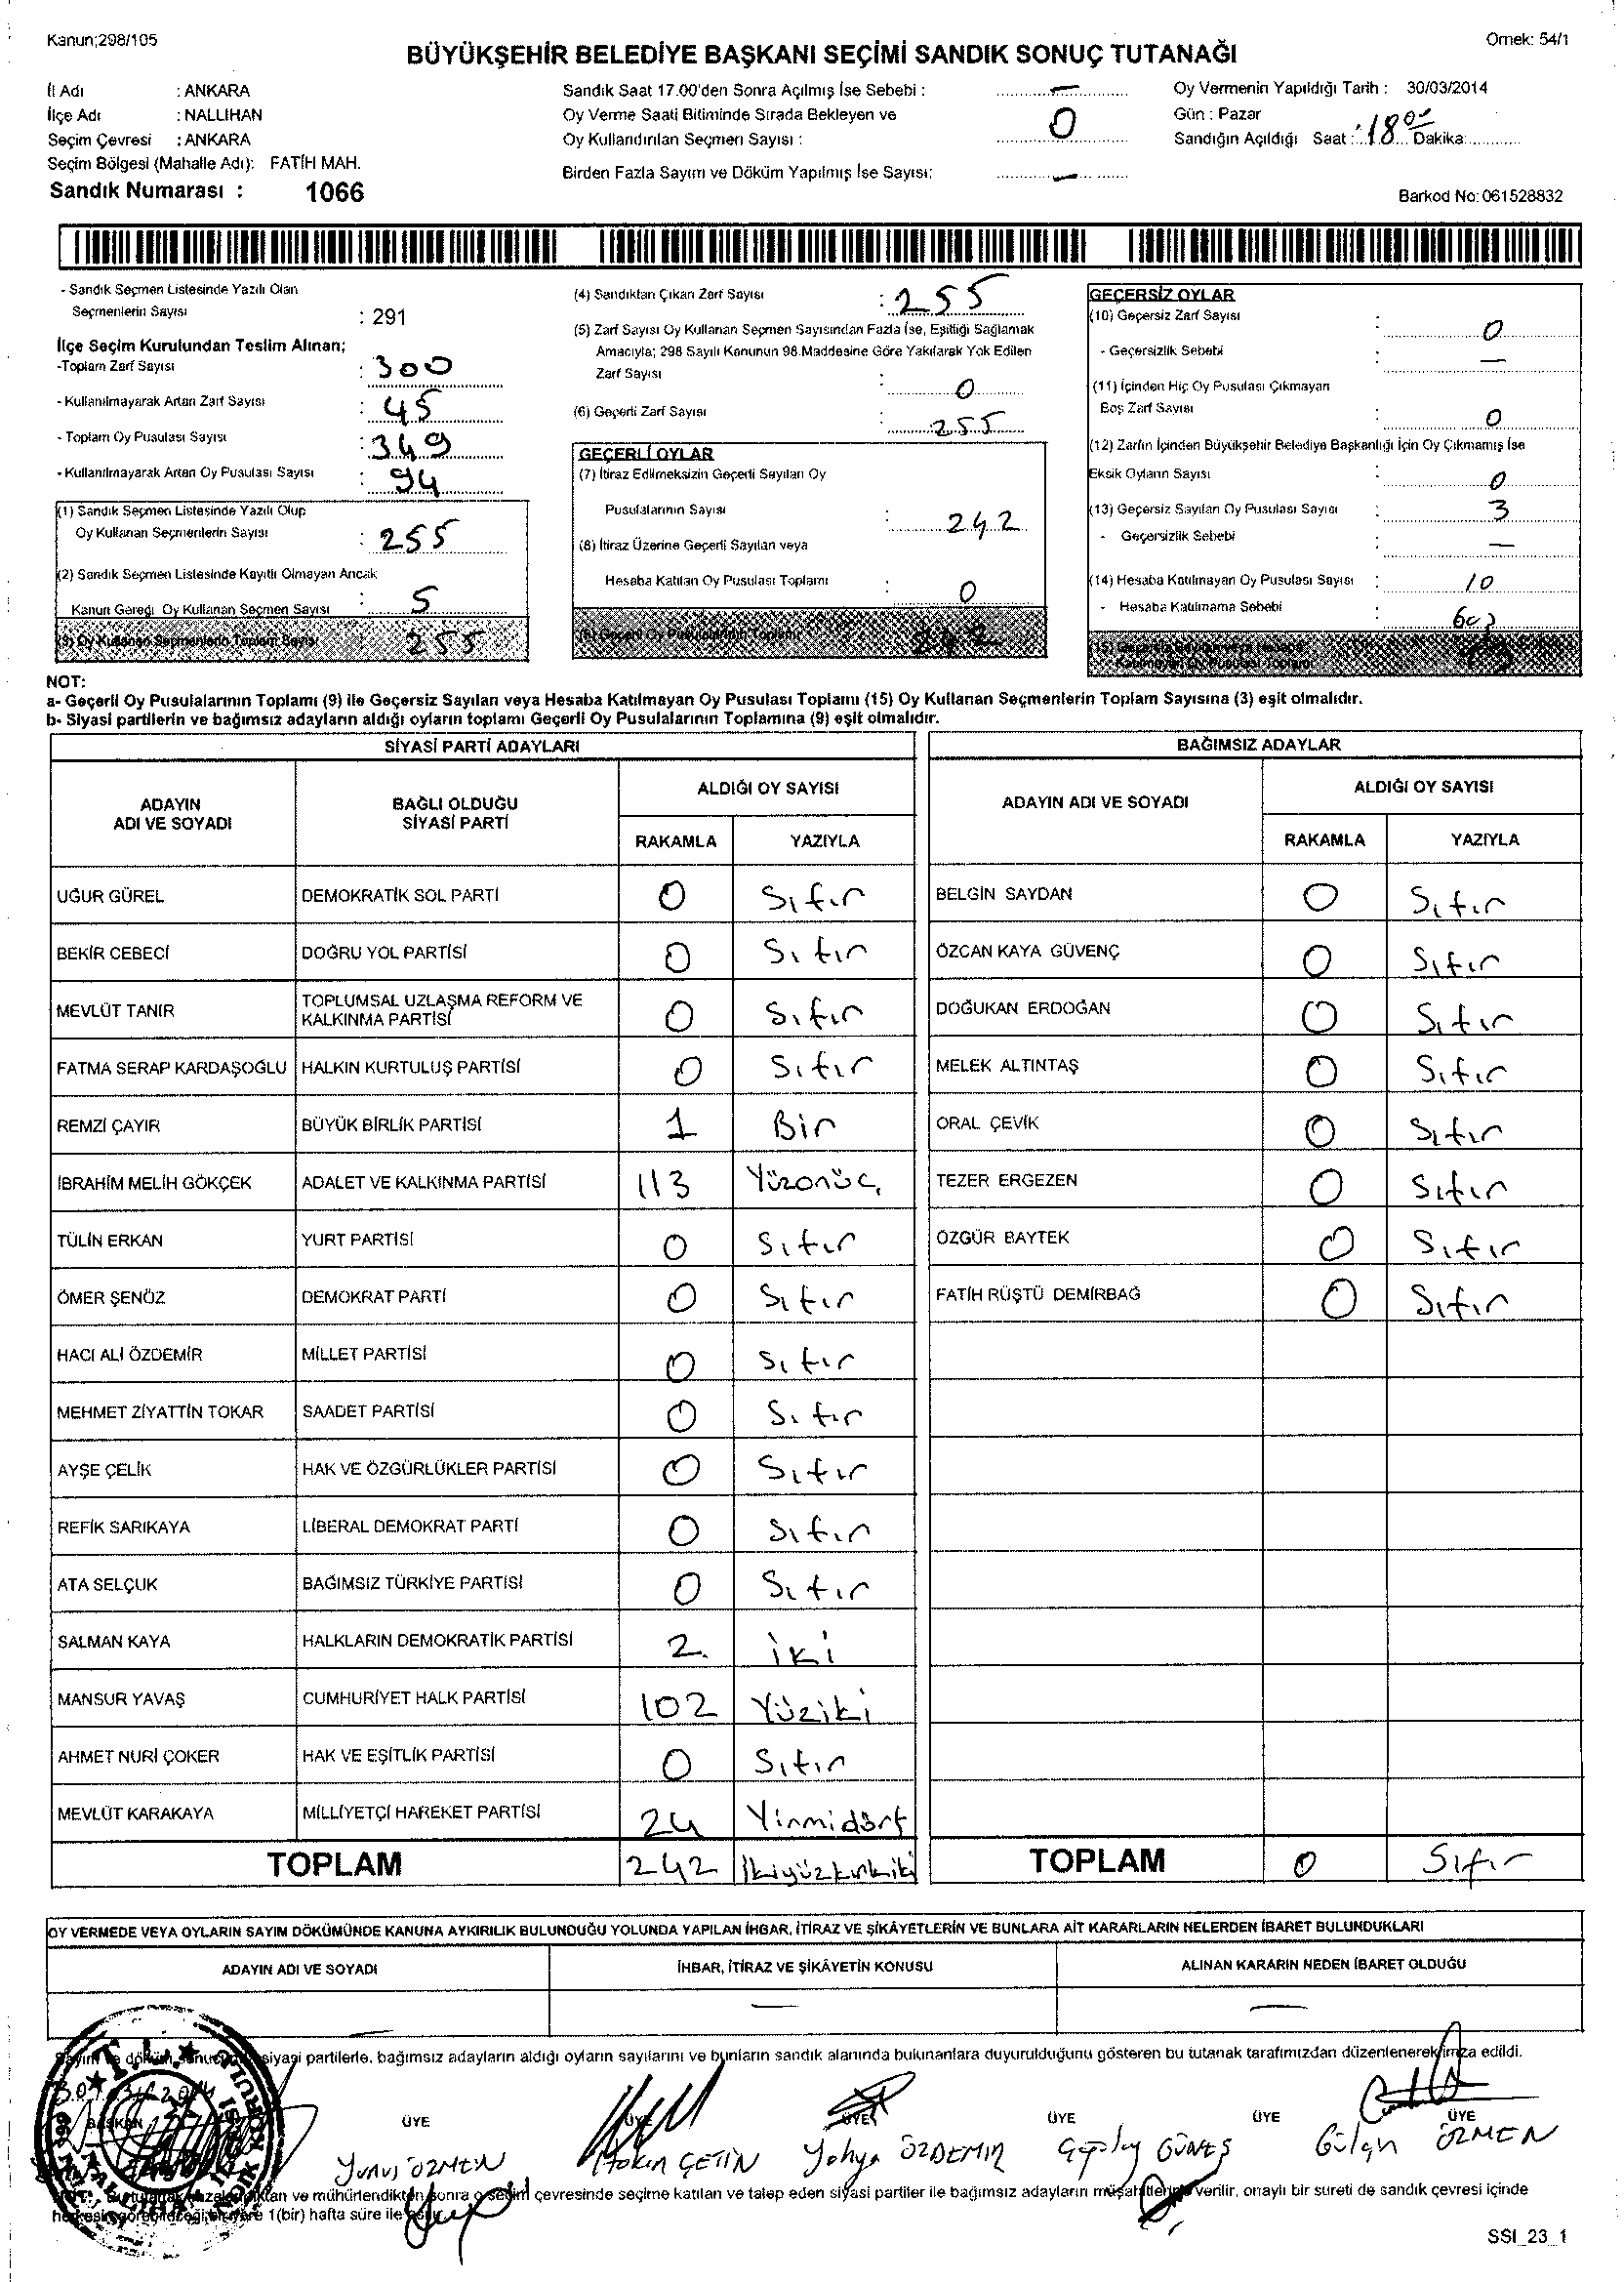 Kanun;298/105
Örnek: 54/1
BÜYÜKŞEHİR BELEDİYE BAŞKANI SEÇİMİ SANDIK SONUÇ TUTANAĞI
İl Adı : ANKARA
İlçe Adı : NALLIHAN
Seçim Çevresi : ANKARA
Seçim Bölgesi (Mahalle Adı): FATİH MAH.
Sandık Numarası : 1066
Sandık Saat 17.00'den Sonra Açılmış İse Sebebi : —
Oy Verme Saati Bitiminde Sırada Bekleyen ve
Oy Kullandırılan Seçmen Sayısı : 0
Birden Fazla Sayım ve Döküm Yapılmış İse Sayısı: —
Oy Vermenin Yapıldığı Tarih : 30/03/2014
Gün : Pazar
Sandığın Açıldığı Saat : 18 00 Dakika:
Barkod No: 061528832
- Sandık Seçmen Listesinde Yazılı Olan
Seçmenlerin Sayısı : 291
İlçe Seçim Kurulundan Teslim Alınan;
-Toplam Zarf Sayısı : 300
- Kullanılmayarak Artan Zarf Sayısı : 45
- Toplam Oy Pusulası Sayısı : 349
- Kullanılmayarak Artan Oy Pusulası Sayısı : 94
(1) Sandık Seçmen Listesinde Yazılı Olup
Oy Kullanan Seçmenlerin Sayısı : 255
(2) Sandık Seçmen Listesinde Kayıtlı Olmayan Ancak
Kanun Gereği Oy Kullanan Seçmen Sayısı : 5
(3) Oy Kullanan Seçmenlerin Toplam Sayısı 255
(4) Sandıktan Çıkan Zarf Sayısı : 255
(5) Zarf Sayısı Oy Kullanan Seçmen Sayısından Fazla İse, Eşitliği Sağlamak
Amacıyla; 298 Sayılı Kanunun 98.Maddesine Göre Yakılarak Yok Edilen
Zarf Sayısı : 0
(6) Geçerli Zarf Sayısı : 255
GEÇERLİ OYLAR
(7) İtiraz Edilmeksizin Geçerli Sayılan Oy
Pusulalarının Sayısı : 242
(8) İtiraz Üzerine Geçerli Sayılan veya
Hesaba Katılan Oy Pusulası Toplamı : 0
(9) Geçerli Oy Pusulalarının Toplamı 242
GEÇERSİZ OYLAR
(10) Geçersiz Zarf Sayısı : 0
- Geçersizlik Sebebi : —
(11) İçinden Hiç Oy Pusulası Çıkmayan
Boş Zarf Sayısı : 0
(12) Zarfın İçinden Büyükşehir Belediye Başkanlığı İçin Oy Çıkmamış İse
Eksik Oyların Sayısı : 0
(13) Geçersiz Sayılan Oy Pusulası Sayısı : 3
- Geçersizlik Sebebi : —
(14) Hesaba Katılmayan Oy Pusulası Sayısı : 10
- Hesaba Katılmama Sebebi :
(15) Geçersiz Sayılan veya Hesaba
Katılmayan Oy Pusulası Toplamı
NOT:
a- Geçerli Oy Pusulalarının Toplamı (9) ile Geçersiz Sayılan veya Hesaba Katılmayan Oy Pusulası Toplamı (15) Oy Kullanan Seçmenlerin Toplam Sayısına (3) eşit olmalıdır.
b- Siyasi partilerin ve bağımsız adayların aldığı oyların toplamı Geçerli Oy Pusulalarının Toplamına (9) eşit olmalıdır.
SİYASİ PARTİ ADAYLARI
ADAYIN ADI VE SOYADI BAĞLI OLDUĞU SİYASİ PARTİ ALDIĞI OY SAYISI
RAKAMLA YAZIYLA
UĞUR GÜREL DEMOKRATİK SOL PARTİ 0 Sıfır
BEKİR CEBECİ DOĞRU YOL PARTİSİ 0 Sıfır
MEVLÜT TANIR TOPLUMSAL UZLAŞMA REFORM VE KALKINMA PARTİSİ 0 Sıfır
FATMA SERAP KARDAŞOĞLU HALKIN KURTULUŞ PARTİSİ 0 Sıfır
REMZİ ÇAYIR BÜYÜK BİRLİK PARTİSİ 1 Bir
İBRAHİM MELİH GÖKÇEK ADALET VE KALKINMA PARTİSİ 113 Yüzonüç
TÜLİN ERKAN YURT PARTİSİ 0 Sıfır
ÖMER ŞENÖZ DEMOKRAT PARTİ 0 Sıfır
HACI ALİ ÖZDEMİR MİLLET PARTİSİ 0 Sıfır
MEHMET ZİYATTİN TOKAR SAADET PARTİSİ 0 Sıfır
AYŞE ÇELİK HAK VE ÖZGÜRLÜKLER PARTİSİ 0 Sıfır
REFİK SARIKAYA LİBERAL DEMOKRAT PARTİ 0 Sıfır
ATA SELÇUK BAĞIMSIZ TÜRKİYE PARTİSİ 0 Sıfır
SALMAN KAYA HALKLARIN DEMOKRATİK PARTİSİ 2. iki
MANSUR YAVAŞ CUMHURİYET HALK PARTİSİ 102 Yüziki
AHMET NURİ ÇOKER HAK VE EŞİTLİK PARTİSİ 0 Sıfır
MEVLÜT KARAKAYA MİLLİYETÇİ HAREKET PARTİSİ 24 Yirmidört
TOPLAM 242 İkiyüzkırkiki
BAĞIMSIZ ADAYLAR
ADAYIN ADI VE SOYADI ALDIĞI OY SAYISI
RAKAMLA YAZIYLA
BELGİN SAYDAN 0 Sıfır
ÖZCAN KAYA GÜVENÇ 0 Sıfır
DOĞUKAN ERDOĞAN 0 Sıfır
MELEK ALTINTAŞ 0 Sıfır
ORAL ÇEVİK 0 Sıfır
TEZER ERGEZEN 0 Sıfır
ÖZGÜR BAYTEK 0 Sıfır
FATİH RÜŞTÜ DEMİRBAĞ 0 Sıfır
TOPLAM 0 Sıfır
OY VERMEDE VEYA OYLARIN SAYIM DÖKÜMÜNDE KANUNA AYKIRILIK BULUNDUĞU YOLUNDA YAPILAN İHBAR, İTİRAZ VE ŞİKÂYETLERİN VE BUNLARA AİT KARARLARIN NELERDEN İBARET BULUNDUKLARI
ADAYIN ADI VE SOYADI İHBAR, İTİRAZ VE ŞİKÂYETİN KONUSU ALINAN KARARIN NEDEN İBARET OLDUĞU
— — —
Sayım ve döküm siyasi partilerle, bağımsız adayların aldığı oyların sayılarını ve bunların sandık alanında bulunanlara duyurulduğunu gösteren bu tutanak tarafımızdan düzenlenerek imza edildi.
BAŞKAN ÜYE ÜYE ÜYE ÜYE ÜYE ÜYE
Yunus ÖZMEN Hakan ÇETİN Yahya ÖZDEMİR GÜNEŞ Gülçin ÖZMEN
ve mühürlendikten sonra o seçim çevresinde seçime katılan ve talep eden siyasi partiler ile bağımsız adayların müşahitlerine verilir, onaylı bir sureti de sandık çevresi içinde
1(bir) hafta süre ile
SSI_23_1